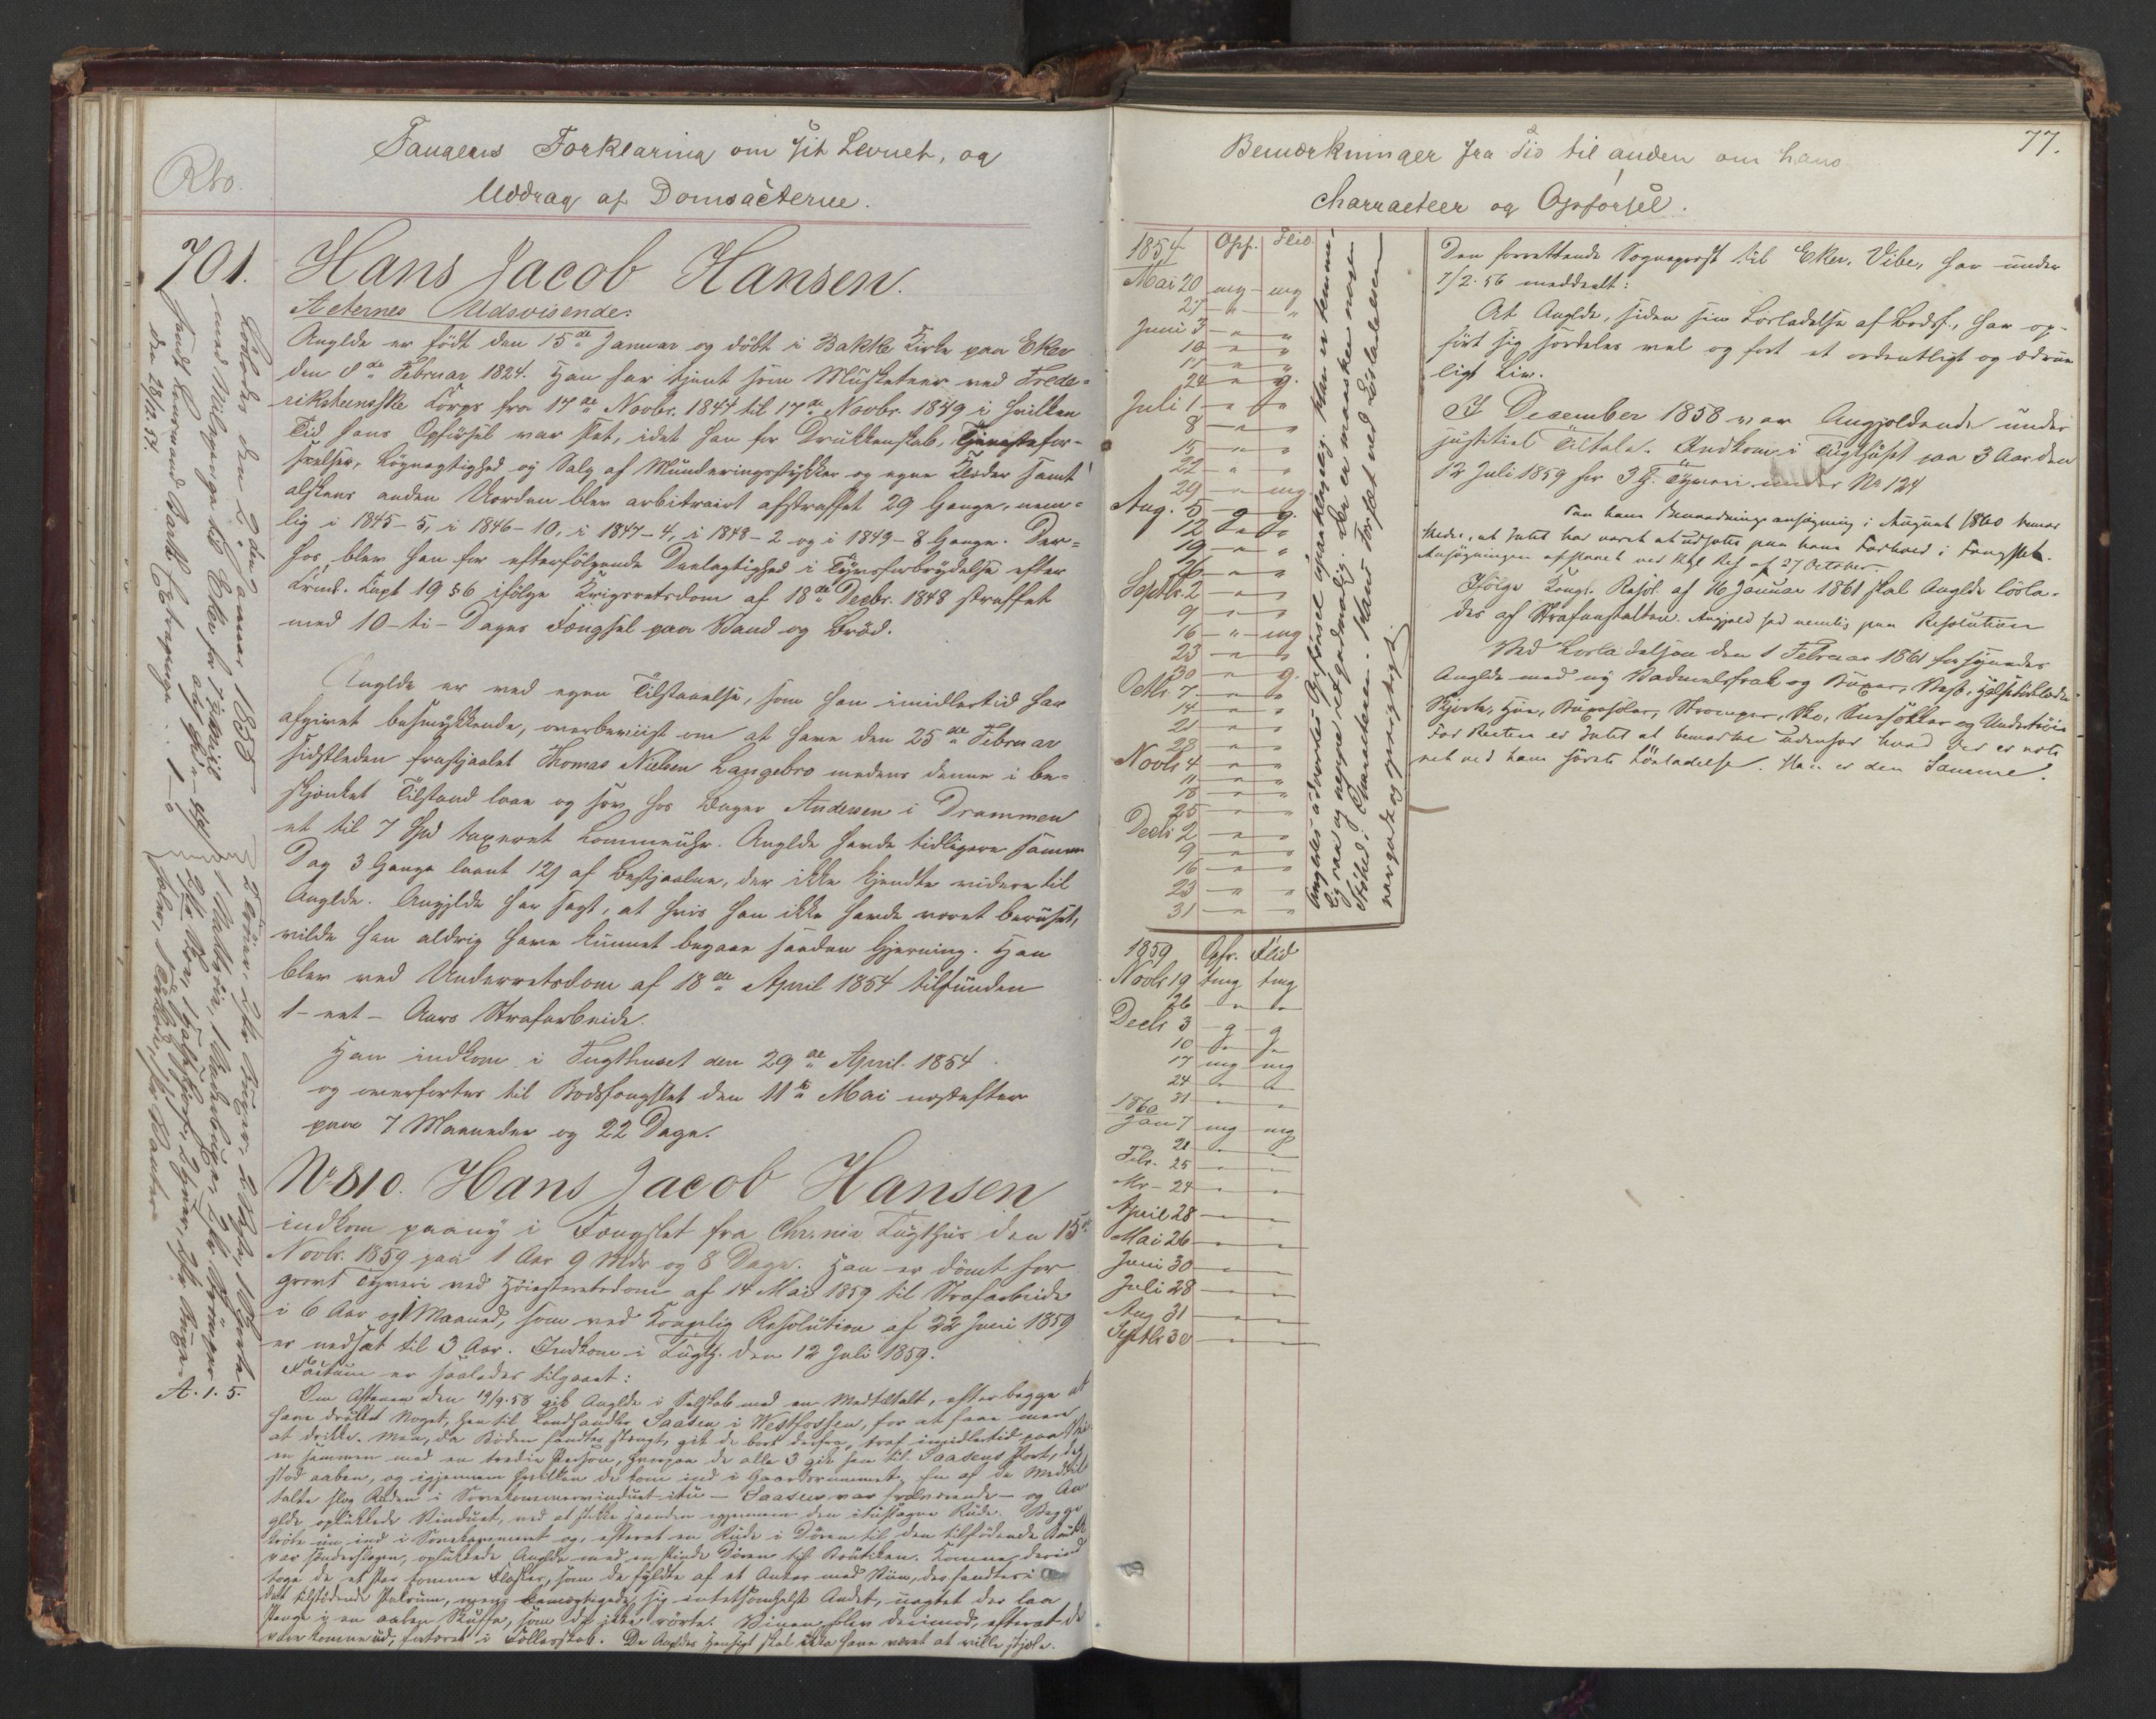 Fangens Forklaring om sit Levnet, og
Uddrag af Domsacterne.
Rbo.
701.
Hans Jacob Hansen.
Acternes Udvisende:
Anglde er födt den 15de Januar og döbt i Bakke Kirke paa Eker
den 8de Februar 1824. Han har tjent som Musketeer ved Frede-
rikshernske Corps fra 17de Novbr. 1844 til 17de Novbr. 1849 i hvilken
Tid hans Opförsel var slet, idet han for Drukkenskab, Tjenestefor-
seelser, Lögnagtighed og Salg af Munderingsstykker og egne Klæder samt
alskens anden Uorden blev arbitrairt afstraffet 29 Gange, nem-
lig i 1845-5, i 1846-10, i 1847-4, i 1848-2 og i 1849-8 Gange. Der-
hos blev han for efterfölgende Deelagtighed i Tyvsforbrydelse efter
Crml. Kapt 19 § 6 ifölge Krigsretsdom af 18de Decbr. 1848 straffet
med 10-ti-Dages Fængsel paa Vand og Bröd.
Anglde er ved egen Tilstaaelse, som han imidlertid har
afgivet besmykkende, overbeviist om at have den 25de Februar
sidstleden frastjaalet Thomas Nielsen Langebro medens denne i be-
skjænket Tilstand laae og sov hos Bager Andersen i Drammen
et til 7 Spd taxeret Lommeuhr. Anglde havde tidligere samme
Dag 3 Gange laant 12 s af Bestjaalne, der ikke kjendte videre til
Anglde. Angjlde har sagt, at hvis han ikke havde været beruset,
vilde han aldrig have kunnet begaae saadan Gjerning. Han
blev ved Underretsdom af 18de April 1854 tilfunden
1-eet- Aars Strafarbeide.
Han indkom i Tugthuset den 29de April 1854
og overfortes til Bodsfængslet den 11te Mai næstefter
paa 7 Maaneder og 22 Dage.
No 810. Hans Jacob Hansen
indkom paany i Fængslet fra Chr.nia Tugthus den 15de
Novbr. 1859 paa 1 Aar 9 Mdr og 8 Dage. Han er dömt for
grovt Tyveri ved Höiesteretsdom af 14 Mai 1859 til Strafarbeide
i 6 Aar og 1 Maaned, som ved Kongelig Resolution af 22 Juni 1859
er nedsat til 3 Aar. Indkom i Tugth. den 12 Juli 1859.
Factum er saaledes tilgaaet:
Om Aftenen den 19/9.58 gik Anglde i Selskab med en Medtiltalt, efter begge at
have drukket Noget, hen til Landhandler Saasen i Westfossen, for at faae mere
at drikke. Men, da Boden fandtes stængt, gik de bort derfra, traf imidlertid paa
en sammen med en tredie Person, hvorpaa de alle 3 gik hen til Saasens Port, der
stod aaben, og igjennem hvilken de kom ind i Gaardsrummet. En af de Medtil
talte slog Ruden i Sovekammervinduet itu - Saasen var fraværende - og An
glde oplukkede Vinduet, ved at stikke haanden igjennem den ituslagne Rude. Begge
kröbe nu ind i Sovekammeret og, efterat en Rude i Dören til den tilstödende Boutik
var sönderslagen, oplukkede Anglde med en Pinde Dören til Boutiken. Komne derind
toge de et Par tomme Flasker, som de fyldte af et Anker med Viin, der fandtes i
det tilstödende Pakrum, men bemægtigede sig intetsomhelst Andet, uagtet der laa
Penge i en aaben Skuffe, som de ikke rörte. Vinen blev derimod, efterat de
vare komne ud, fortæret i Fællesskab. De Angldes Hensigt skal ikke have været at ville stjæle.
Löslodes den 2den Januar 1855
med Reisepenge til Eker
sendt Lensmand
den 28/12.54.
A. 1. 5.
77.
Bemærkninger fra Tid til anden om hans
Charracteer og Opförsel.
1854 Opf. Flid
Mai 20 mg mg
27 " "
Juni 3 " "
10 " "
17 " "
24 " g.
Juli 1 " "
8 " "
15 " "
22 " "
29 " mg
Aug. 5 g g.
12 " "
19 " "
26 " "
Septbr. 2 " "
9 " "
16 " mg
23 " "
30 " g.
Octbr. 7 " "
14 " "
21 " "
28 " "
Novbr 4 " "
11 " "
18 " "
25 " "
Decbr 2 " "
9 " "
16 " "
23 " "
31 " "
Angldes udvortes Opförsel upaaklagelig. Han er temme-
lig raa og neppe ret godmodig. Der er maaskee nogen
Stöhed i Characteren. Hans Forsæt ved Lösladelsen
var godt og oprigtigt.
1859 Opf. Flid
Novbr 19 tmg tmg
26 " "
Decbr 3 g g
10 " "
17 mg mg
24 " "
31 " "
1860
Jan 7 mg mg
21 " "
Febr. 25 " "
Mr - 24 " "
April 28 " "
Mai 26 " "
Juni 30 " "
Juli 28 " "
Aug 31 " "
Septbr 30 " "
Den forrettende Sogneprest til Eker, Vibe, har under
7/2.56 meddeelt:
At Anglde, siden sin Losladelse af Bodsf., har op-
fört sig særdeles vel og fört et ordentligt og ædrue
ligt Liv.
I December 1858 var Angjeldende under
justitiel Tiltale. Indkom i Tugthuset paa 3 Aar den
12 Juli 1859 for 3 G. Tyveri under No 124
Paa hans Benaadningsansögning i August 1860 bemær
kedes, at Intet har været at udsætte paa hans Forhold i Fængslet.
Ansögningen afslaaet ved Kgl Res af 27 October.
Ifölge Kongl. Resol. af 16 Januar 1861 skal Anglde lösla-
des af Strafanstalten. Angjeld sad nemlig paa Resolution
Ved Losladelsen den 1 Februar 1861 forsynedes
Anglde med ny Vadmelsfrak og Buxer, Vest, Halstörklæde
Skjorte, Hue, Buxesæler, Strömper, Sko, Snesokker og Undertröie
For Resten er Intet at bemærke udenfor hvad der er note
ret ved hans förste Lösladelse. Han er den Samme.